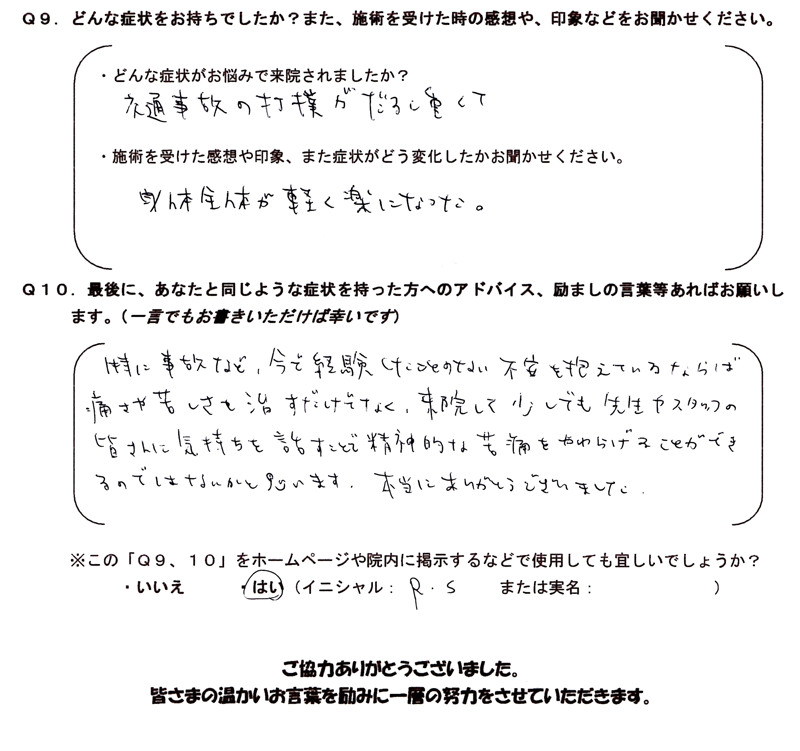 Q9．どんな症状をお持ちでしたか？また、施術を受けた時の感想や、印象などをお聞かせください。
・どんな症状がお悩みで来院されましたか？
交通事故の打撲がだるく重くて
・施術を受けた感想や印象、また症状がどう変化したかお聞かせください。
身体全体が軽く楽になった。
Q10．最後に、あなたと同じような症状を持った方へのアドバイス、励ましの言葉等あればお願いし
ます。（一言でもお書きいただけば幸いです）
特に事故など、今まで経験したことのない不安を抱えているならば
痛さや苦しさを治すだけでなく、来院して少しでも先生やスタッフの
皆さんに気持ちを話すことで精神的な苦痛をやわらげることができ
るのではないかと思います。本当にありがとうございました。
※この「Q9、10」をホームページや院内に掲示するなどで使用しても宜しいでしょうか？
・いいえ ・はい（イニシャル： R．S または実名： ）
ご協力ありがとうございました。
皆さまの温かいお言葉を励みに一層の努力をさせていただきます。